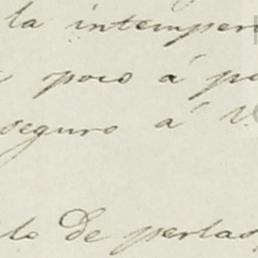 la intemper
poco á po
seguro á V.
lo de perlas,